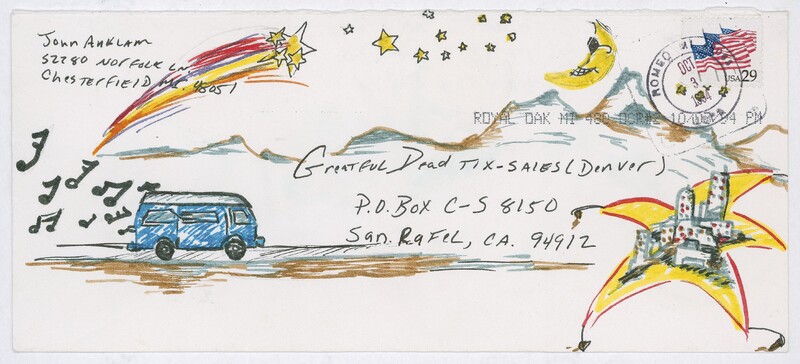 John Anklam
52280 Norfolk Ln
Chesterfield MI. 48051
USA 29
ROMEO MI
OCT
3
1994
ROYAL OAK MI 480 OCR#2 10/03/94 PM
Greatful Dead TIX-SALES (Denver)
P.O. Box C-S 8150
San. Rafel, CA. 94912